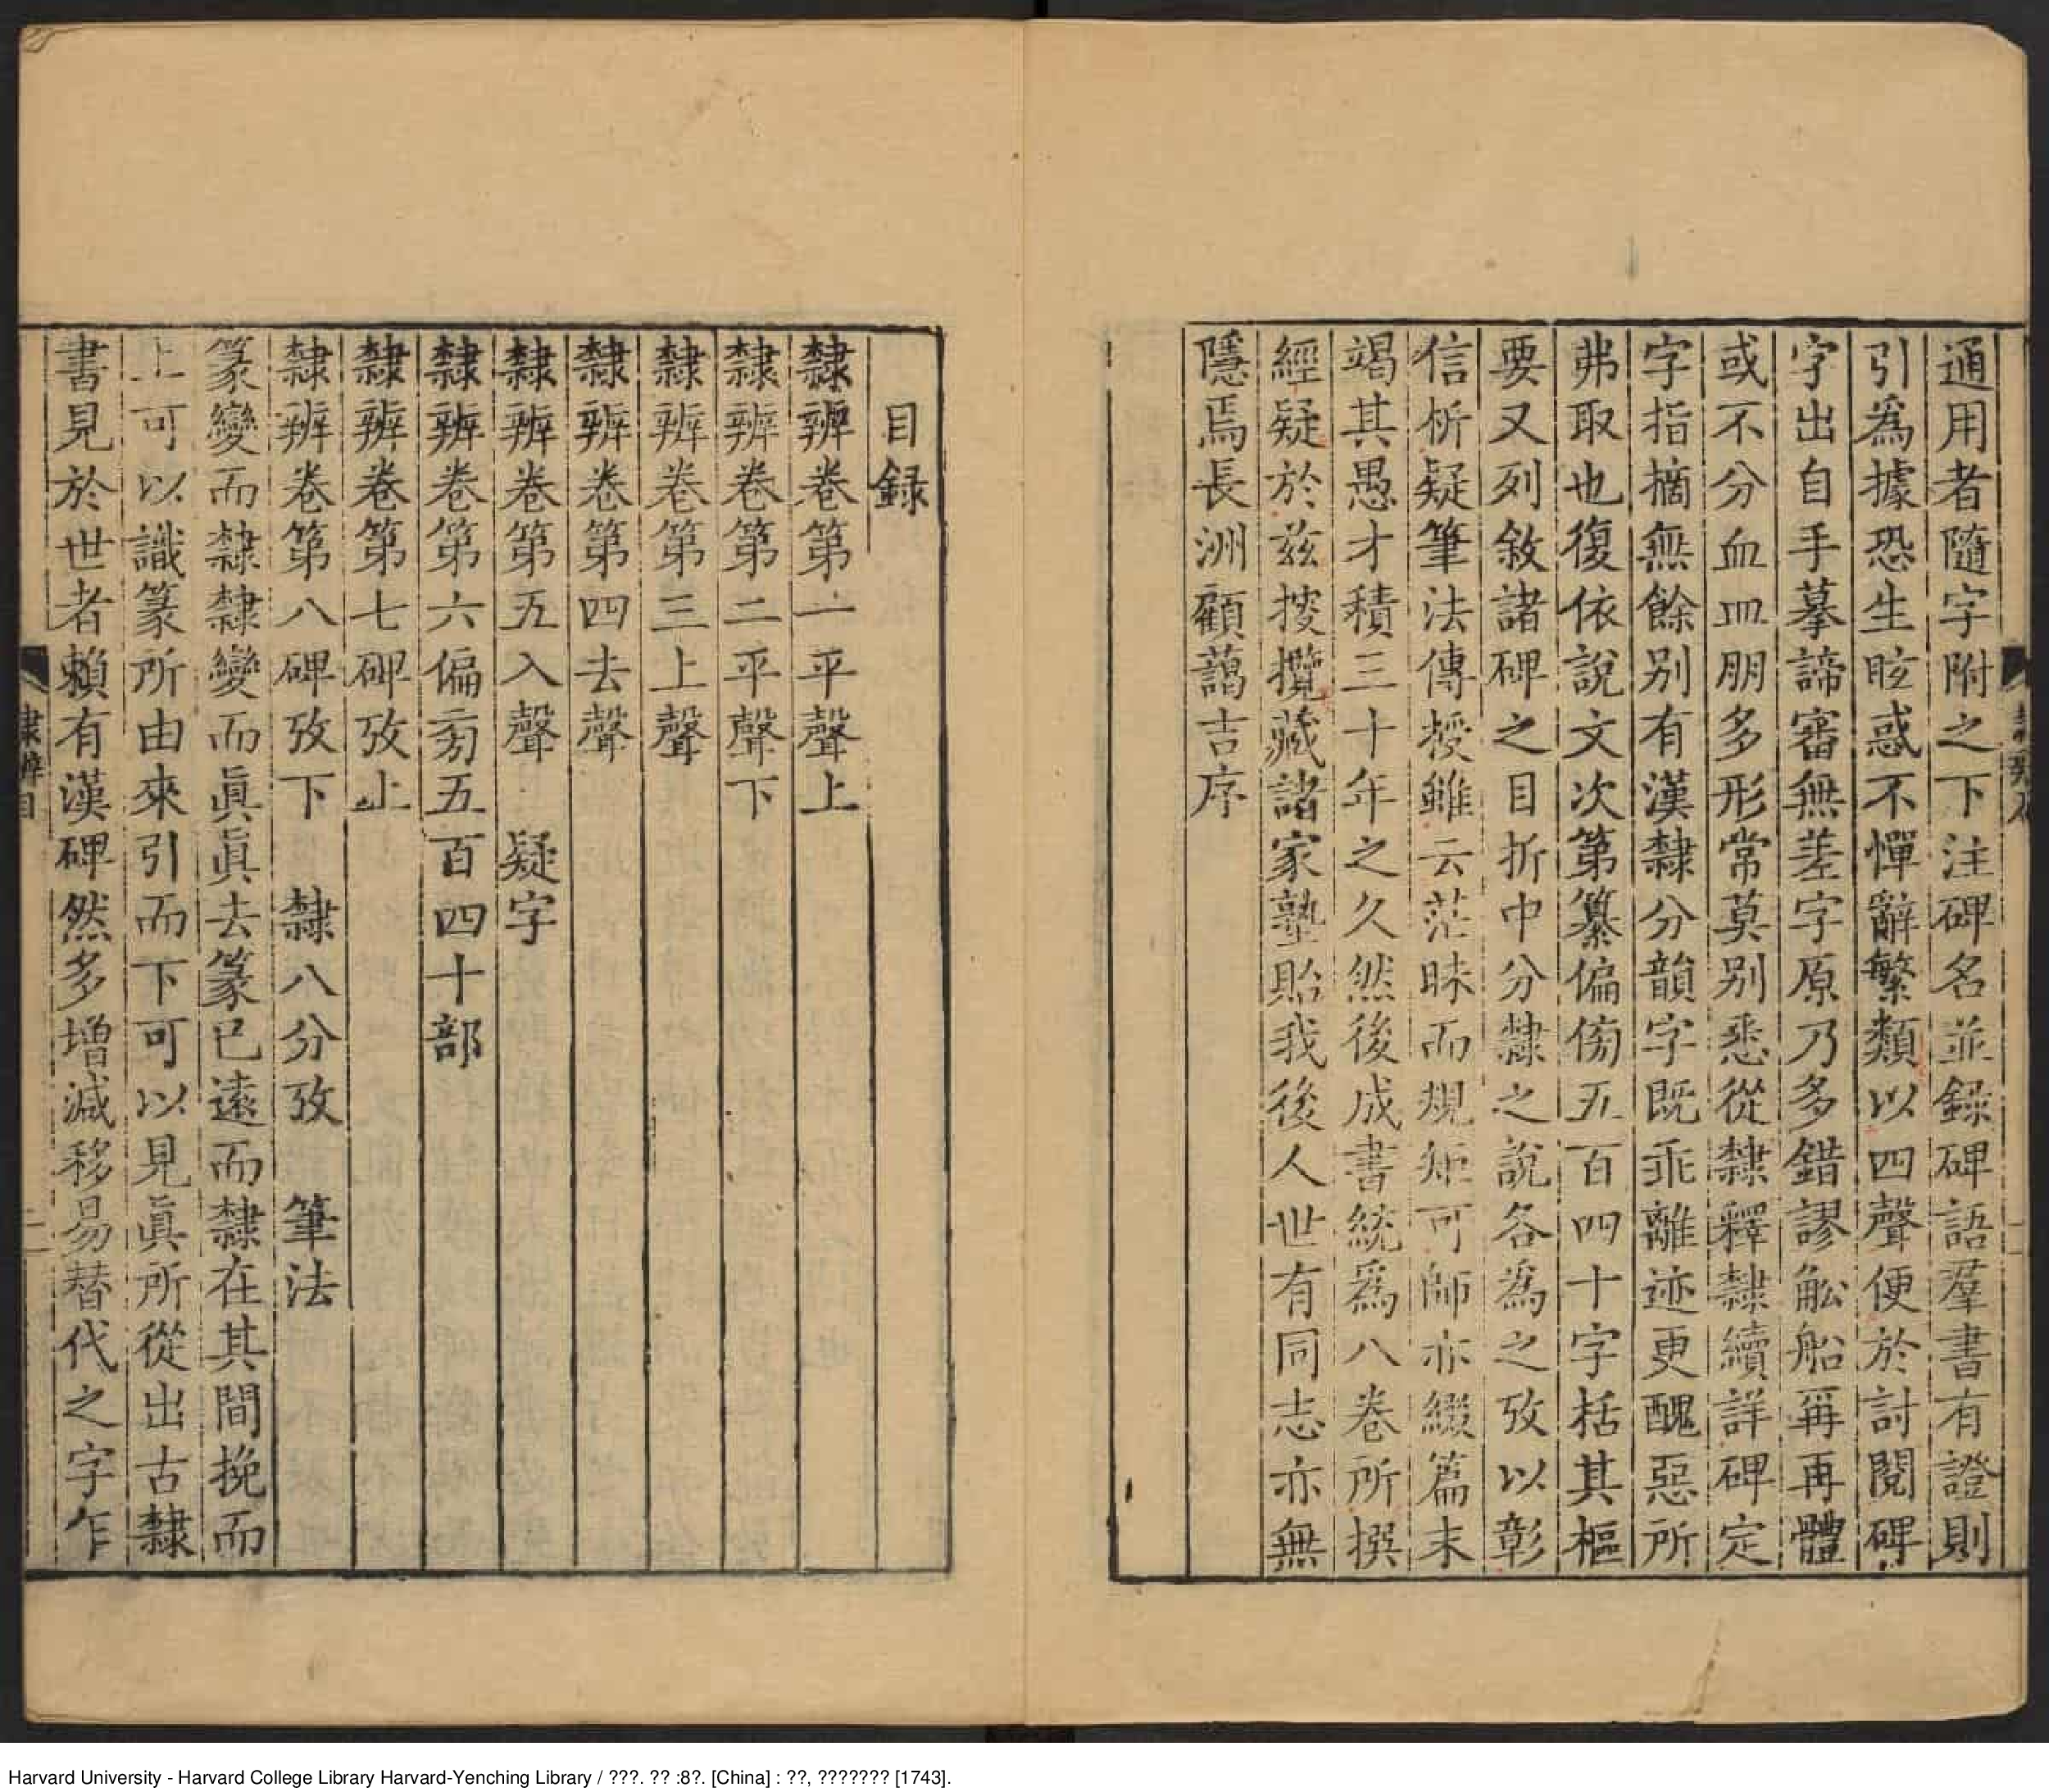 通用者隨字附之下注碑名並錄碑語羣書有證則
引爲據恐生眩惑不憚辭繁類以四聲便於討閱碑
字出自手摹諦審無差字原乃多錯謬舩船再再體
或不分血皿朋多形常莫别悉從隸釋隸續詳碑定
字指摘無餘别有漢隸分韻字既乖離迹更醜惡所
弗取也復依說文次第纂偏傍五百四十字括其樞
要又列敘諸碑之目折中分隸之說各爲之攷以彰
信析疑筆法傳授雖云茫昧而規矩可師亦綴篇末
竭其愚才積三十年之久然後成書統爲八卷所撰
經疑於兹撡攢藏諸家塾貽我後人世有同志亦無
隱焉長洲顧藹吉序
目錄
隸辨卷第一平聲上
隸辨卷第二平聲下
隸辨卷第三上聲
隸辨卷第四去聲
隸辨卷第五入聲 疑字
隸辨卷第六偏旁五百四十部
隸辨卷第七碑攷上
隸辨卷第八碑攷下 隸八分攷 筆法
篆變而隸隸變而眞眞去篆已遠而隸在其間挽而
上可以識篆所由來引而下可以見眞所從出古隸
書見於世者賴有漢碑然多增減移易替代之字乍
隸辨目
Harvard University - Harvard College Library Harvard-Yenching Library / ???. ?? :8?. [China] : ??, ??????? [1743].